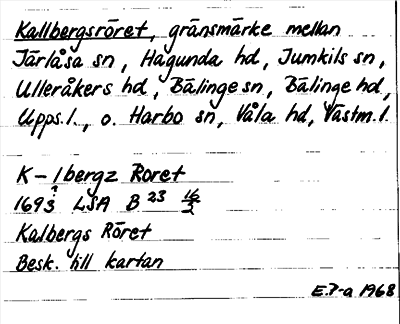 Kallbergsröret, gränsmärke mellan
Järlåsa sn, Hagunda hd, Jumkils sn,
Ulleråkers hd, Bälinge sn, Bälinge hd,
Upps.l., o. Harbo sn, Våla hd, Västm.l.
K-lbergz Roret
1693? LSA B 23 16/2
Kalbergs Röret
Besk. till kartan
E.P-a 1968